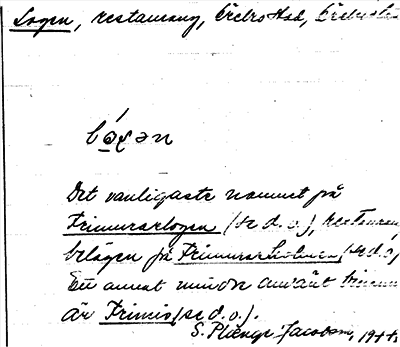 Logen, restaurang, Örebro stad,
Det vanligaste namnet på
Frimurarlogen (se d.o.), restauran
belägen på Frimurareholmen (se d.o.
Ett annat mindre använt
är Frimis (se d.o.).
S. Plenge Jacobson, 19